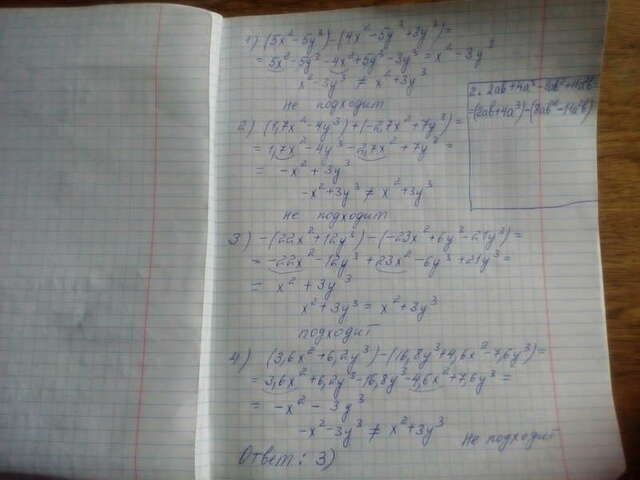 1) (5x²-5y³)-(4x²-5y³+3y³)=
= 5x²-5y³-4x²+5y³-3y³=x²-3y³
x²-3y³ ≠ x²+3y³
не подходит
2) (1,7x²-4y³)+(-2,7x²+7y³)=
= 1,7x²-4y³-2,7x²+7y³=
= -x²+3y³
-x²+3y³ ≠ x²+3y³
не подходит
3) -(22x²+12y³)-(-23x²+6y³-21y³)=
= -22x²-12y³+23x²-6y³+21y³=
= x²+3y³
x²+3y³ = x²+3y³
подходит
4) (3,6x²+6,2y³)-(16,8y³+4,6x²-7,6y³)=
= 3,6x²+6,2y³-16,8y³-4,6x²+7,6y³=
= -x²-3y³
-x²-3y³ ≠ x²+3y³
Не подходит
Ответ: 3)